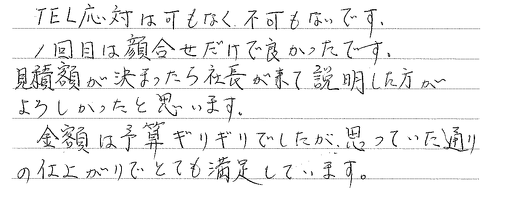 TEL応対は可もなく不可もないです.
1回目は顔合せだけで良かったです.
見積額が決まったら社長が来て説明した方が
よろしかったと思います.
金額は予算ギリギリでしたが、思っていた通り
の仕上がりでとても満足しています。